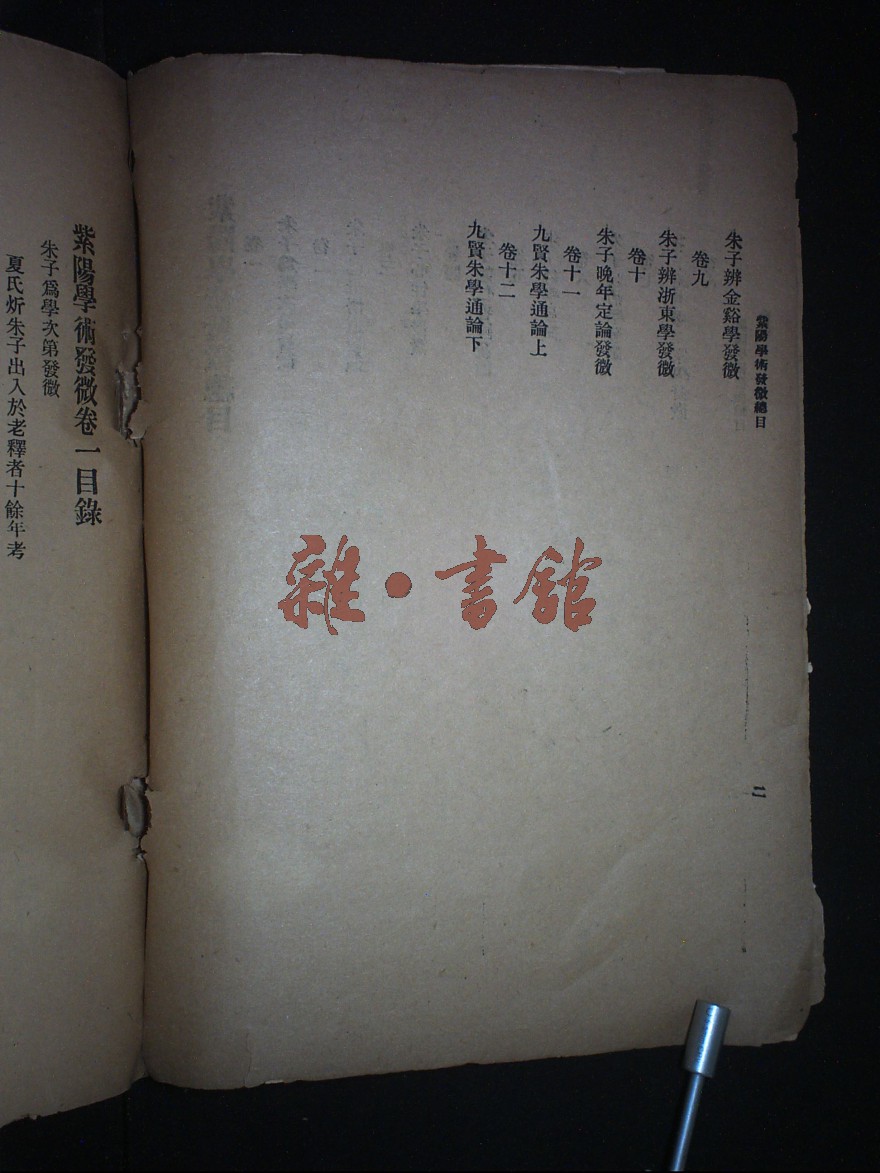 紫陽學術發微總目
二
朱子辨金谿學發微
卷九
朱子辨浙東學發微
卷十
朱子晚年定論發微
卷十一
九賢朱學通論上
卷十二
九賢朱學通論下
紫陽學術發微卷一目錄
朱子爲學次第發微
夏氏炘朱子出入於老釋者十餘年考
雜·書館